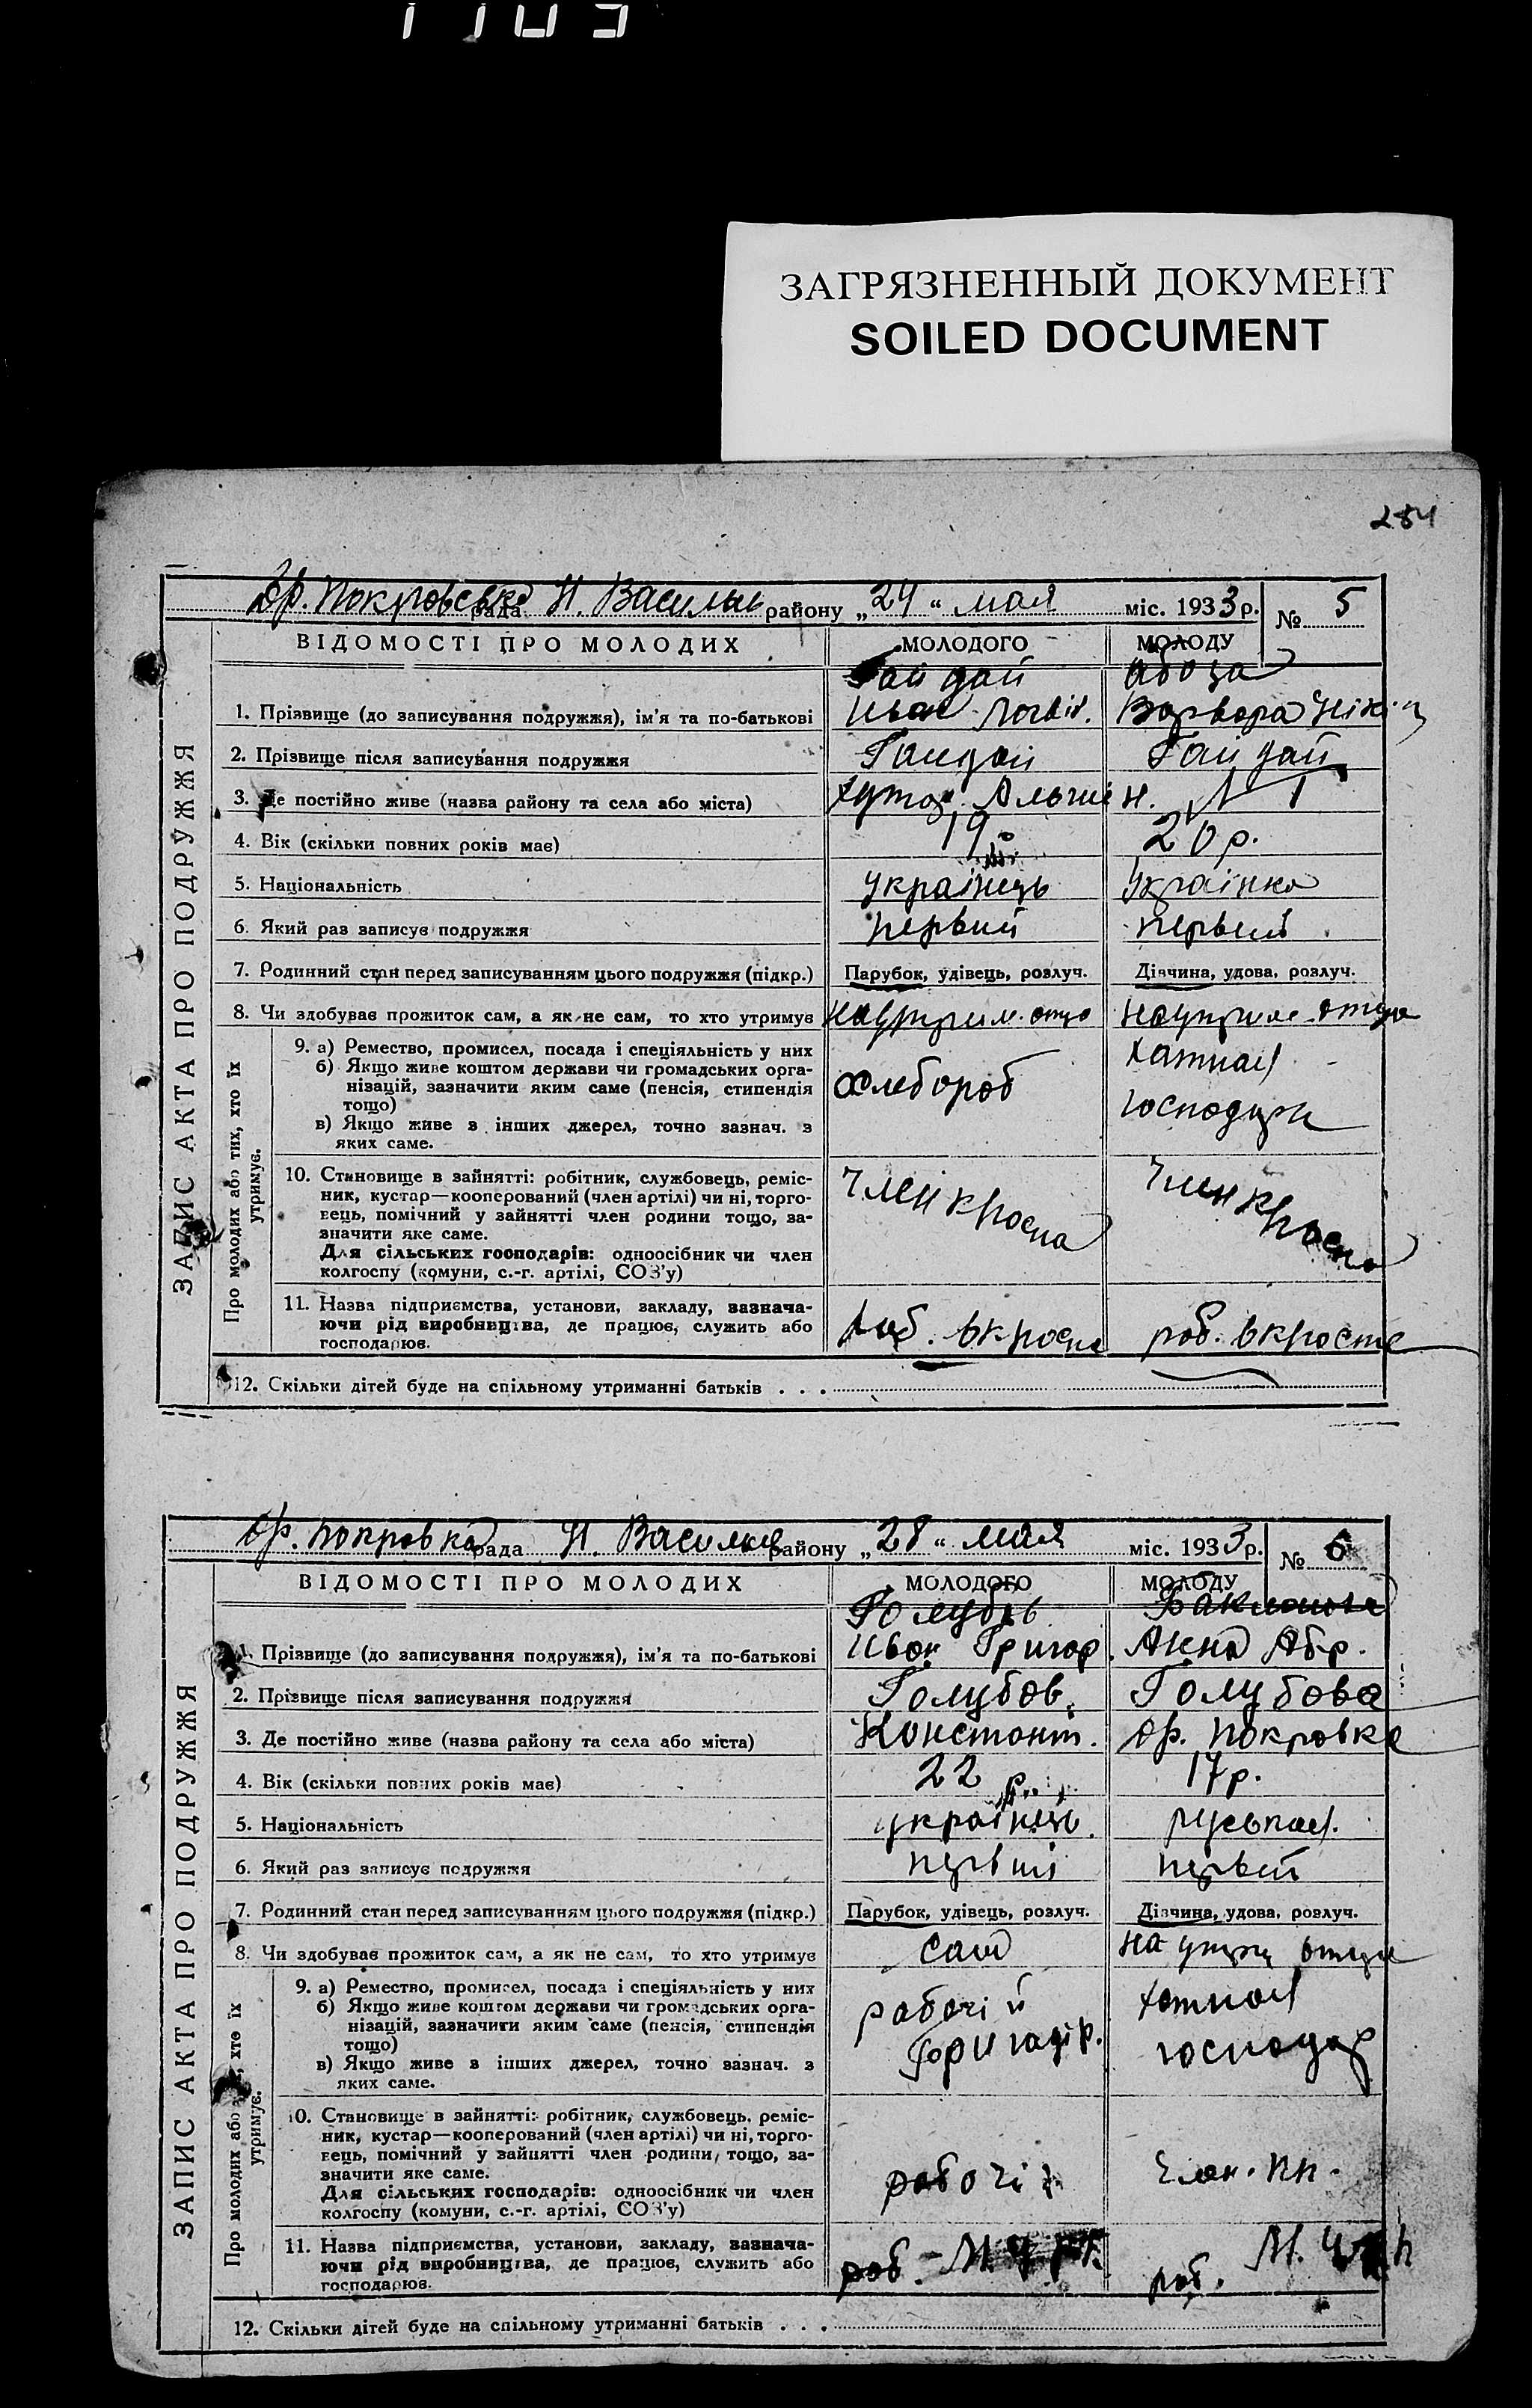 ЗАГРЯЗНЕННЫЙ ДОКУМЕНТ
SOILED DOCUMENT
284
Др. Покровська рада Н. Василів району „24“ мая міс. 1933 р. № 5
ВІДОМОСТІ ПРО МОЛОДИХ МОЛОДОГО МОЛОДУ
ЗАПИС АКТА ПРО ПОДРУЖЖЯ
Гайдай
1. Прізвище (до записування подружжя), ім'я та по-батькові Иван Варвара
2. Прізвище після записування подружжя Гайдай Гайдай
3. Де постійно живе (назва району та села або міста) хутор
4. Вік (скільки повних років має) 19 20 р.
5. Національність українець українка
6. Який раз записує подружжя первий первий
7. Родинний стан перед записуванням цього подружжя (підкр.) Парубок, удівець, розлуч. Дівчина, удова, розлуч.
8. Чи здобуває прожиток сам, а як не сам, то хто утримує на утрим. отца на утрим. отца
Про молодих або тих, хто їх утримує.
9. а) Ремество, промисел, посада і спеціяльність у них
б) Якщо живе коштом держави чи громадських орга-
нізацій, зазначити яким саме (пенсія, стипендія
тощо)
в) Якщо живе з інших джерел, точно зазнач. з
яких саме.
хлебороб
хатная
господарк
10. Становище в зайнятті: робітник, службовець, реміс-
ник, кустар—кооперований (член артілі) чи ні, торго-
вець, помічний у зайнятті член родини тощо, за-
значити яке саме.
Для сільських господарів: одноосібник чи член
колгоспу (комуни, с.-г. артілі, СОЗ'у)
член
член
11. Назва підприємства, установи, закладу, зазнача-
ючи рід виробництва, де працює, служить або
господарює.
роб.
роб.
12. Скільки дітей буде на спільному утриманні батьків . . .
Др. Покровка рада Н. Василів району „28“ мая міс. 1933 р. № 6
ВІДОМОСТІ ПРО МОЛОДИХ МОЛОДОГО МОЛОДУ
ЗАПИС АКТА ПРО ПОДРУЖЖЯ
Голубов
1. Прізвище (до записування подружжя), ім'я та по-батькові Иван Григор. Анна Абр.
2. Прізвище після записування подружжя Голубов Голубова
3. Де постійно живе (назва району та села або міста) Констант. др. Покровка
4. Вік (скільки повних років має) 22 р. 17 р.
5. Національність українець руськая
6. Який раз записує подружжя первий первий
7. Родинний стан перед записуванням цього подружжя (підкр.) Парубок, удівець, розлуч. Дівчина, удова, розлуч.
8. Чи здобуває прожиток сам, а як не сам, то хто утримує сам на утри отца
Про молодих або тих, хто їх утримує.
9. а) Ремество, промисел, посада і спеціяльність у них
б) Якщо живе коштом держави чи громадських орга-
нізацій, зазначити яким саме (пенсія, стипендія
тощо)
в) Якщо живе з інших джерел, точно зазнач. з
яких саме.
рабочій
бригадір.
хатная
господар
10. Становище в зайнятті: робітник, службовець, реміс-
ник, кустар—кооперований (член артілі) чи ні, торго-
вець, помічний у зайнятті член родини, тощо, за-
значити яке саме.
Для сільських господарів: одноосібник чи член
колгоспу (комуни, с.-г. артілі, СОЗ'у)
рабочій
11. Назва підприємства, установи, закладу, зазнача-
ючи рід виробництва, де працює, служить або
господарює.
роб.
роб.
12. Скільки дітей буде на спільному утриманні батьків . . .